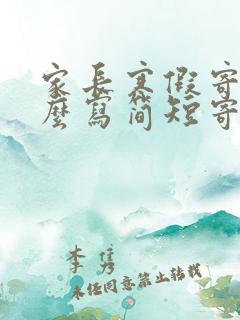 家长寒假寄
麼寫简短寄
李隽
未经同意禁止转载